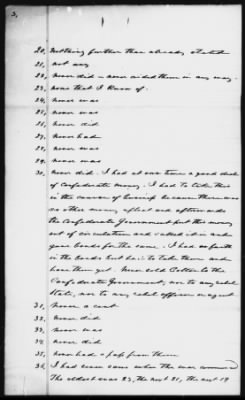 3,
20, nothing further than already stated
21, not any
22, never did – never aided them in any way.
23, none that I know of.
24, never was
25, never was
26, never did
27, never had
28, never was
29, never was
30, never did. I had at one time a good deal
of Confederate money. I had to take this
in the course of because there was
no other money afloat and afterwards
the Confederate Government put this money
out of circulation and called it in and
gave bonds for the same. I had no faith
in the bonds but had to take them and
have them yet. Never sold Cotton to the
Confederate Government, nor to any rebel
state, nor to any rebel officer or agent
31, never a cent
32, never did
33, never was
34, never did
35, never had a pass from them
36, I had sons when the war commenced
The oldest was 23, the next 21, the next 19